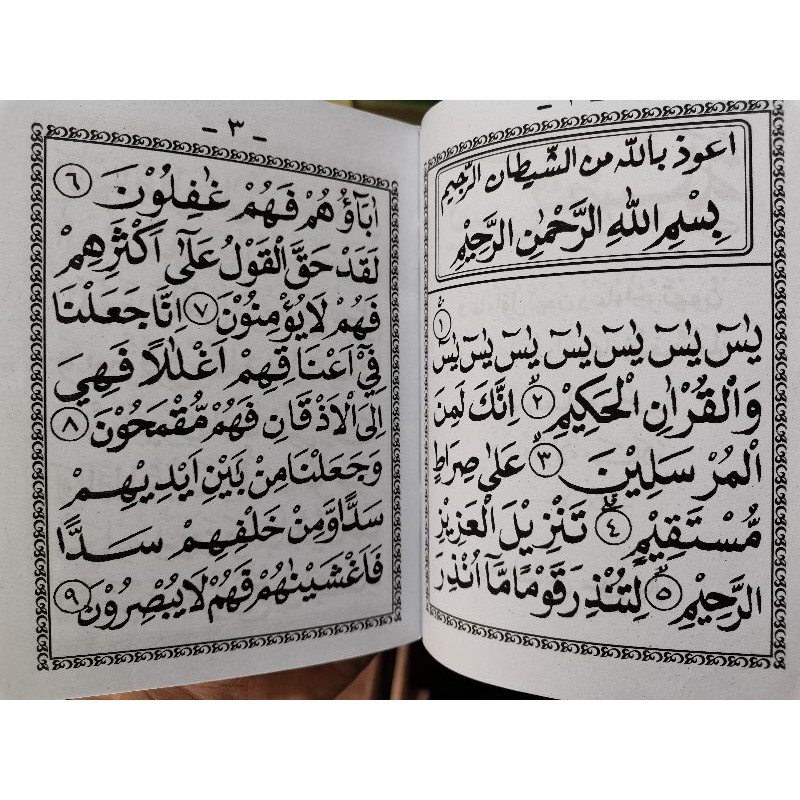 اعوذ بالله من الشيطان الرجيم
بِسْمِ اللهِ الرَّحْمٰنِ الرَّحِيْمِ
يٰسۤ يٰسۤ يٰسۤ يٰسۤ يٰسۤ يٰسۤ يٰسۤ ١
وَالْقُرْاٰنِ الْحَكِيْمِ ٢ اِنَّكَ لَمِنَ
الْمُرْسَلِيْنَ ٣ عَلٰى صِرَاطٍ
مُّسْتَقِيْمٍ ٤ تَنْزِيْلَ الْعَزِيْزِ
الرَّحِيْمِ ٥ لِتُنْذِرَ قَوْمًا مَّآ اُنْذِرَ
- ٣ -
اٰبَآؤُهُمْ فَهُمْ غٰفِلُوْنَ ٦
لَقَدْ حَقَّ الْقَوْلُ عَلٰٓى اَكْثَرِهِمْ
فَهُمْ لَا يُؤْمِنُوْنَ ٧ اِنَّا جَعَلْنَا
فِيْٓ اَعْنَاقِهِمْ اَغْلٰلًا فَهِيَ
اِلَى الْاَذْقَانِ فَهُمْ مُّقْمَحُوْنَ ٨
وَجَعَلْنَا مِنْ بَيْنِ اَيْدِيْهِمْ
سَدًّا وَّمِنْ خَلْفِهِمْ سَدًّا
فَاَغْشَيْنٰهُمْ فَهُمْ لَا يُبْصِرُوْنَ ٩